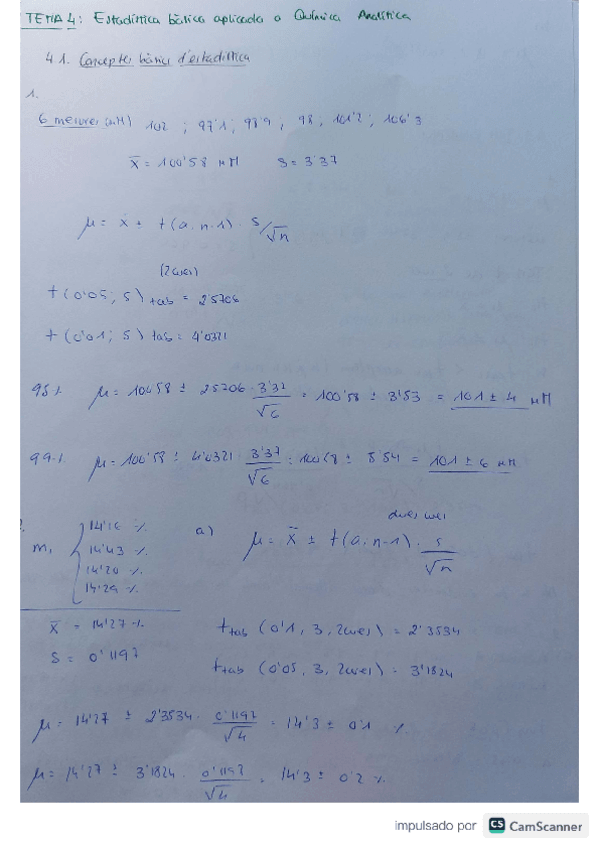 TEMA 4: Estadística bàsica aplicada a Química Analítica
4.1. Conceptes bàsics d'estadística
1.
6 mesures (nM) 102 ; 97'1 ; 98'9 ; 98 ; 101'2 ; 106'3
x̄ = 100'58 μM S = 3'37
μ = x̄ ± t(a, n-1) · S/√n
(2 cues)
t (0'05; 5) tab = 2'5706
t (0'01; 5) tab = 4'0321
95% μ = 100'58 ± 2'5706 · 3'37/√6 = 100'58 ± 3'53 = 101 ± 4 μM
99% μ = 100'58 ± 4'0321 · 3'37/√6 = 100'58 ± 5'54 = 101 ± 6 μM
dues cues
m, { 14'16 % a) μ = x̄ ± t(a, n-1) · s/√n
14'43 %
14'20 %
14'29 %
x̄ = 14'27 % t tab (0'1, 3, 2cues) = 2'3534
S = 0'1197
t tab (0'05, 3, 2cues) = 3'1824
μ = 14'27 ± 2'3534 · 0'1197/√4 = 14'3 ± 0'1 %
μ = 14'27 ± 3'1824 · 0'1197/√4 = 14'3 ± 0'2 %
impulsado por CS CamScanner